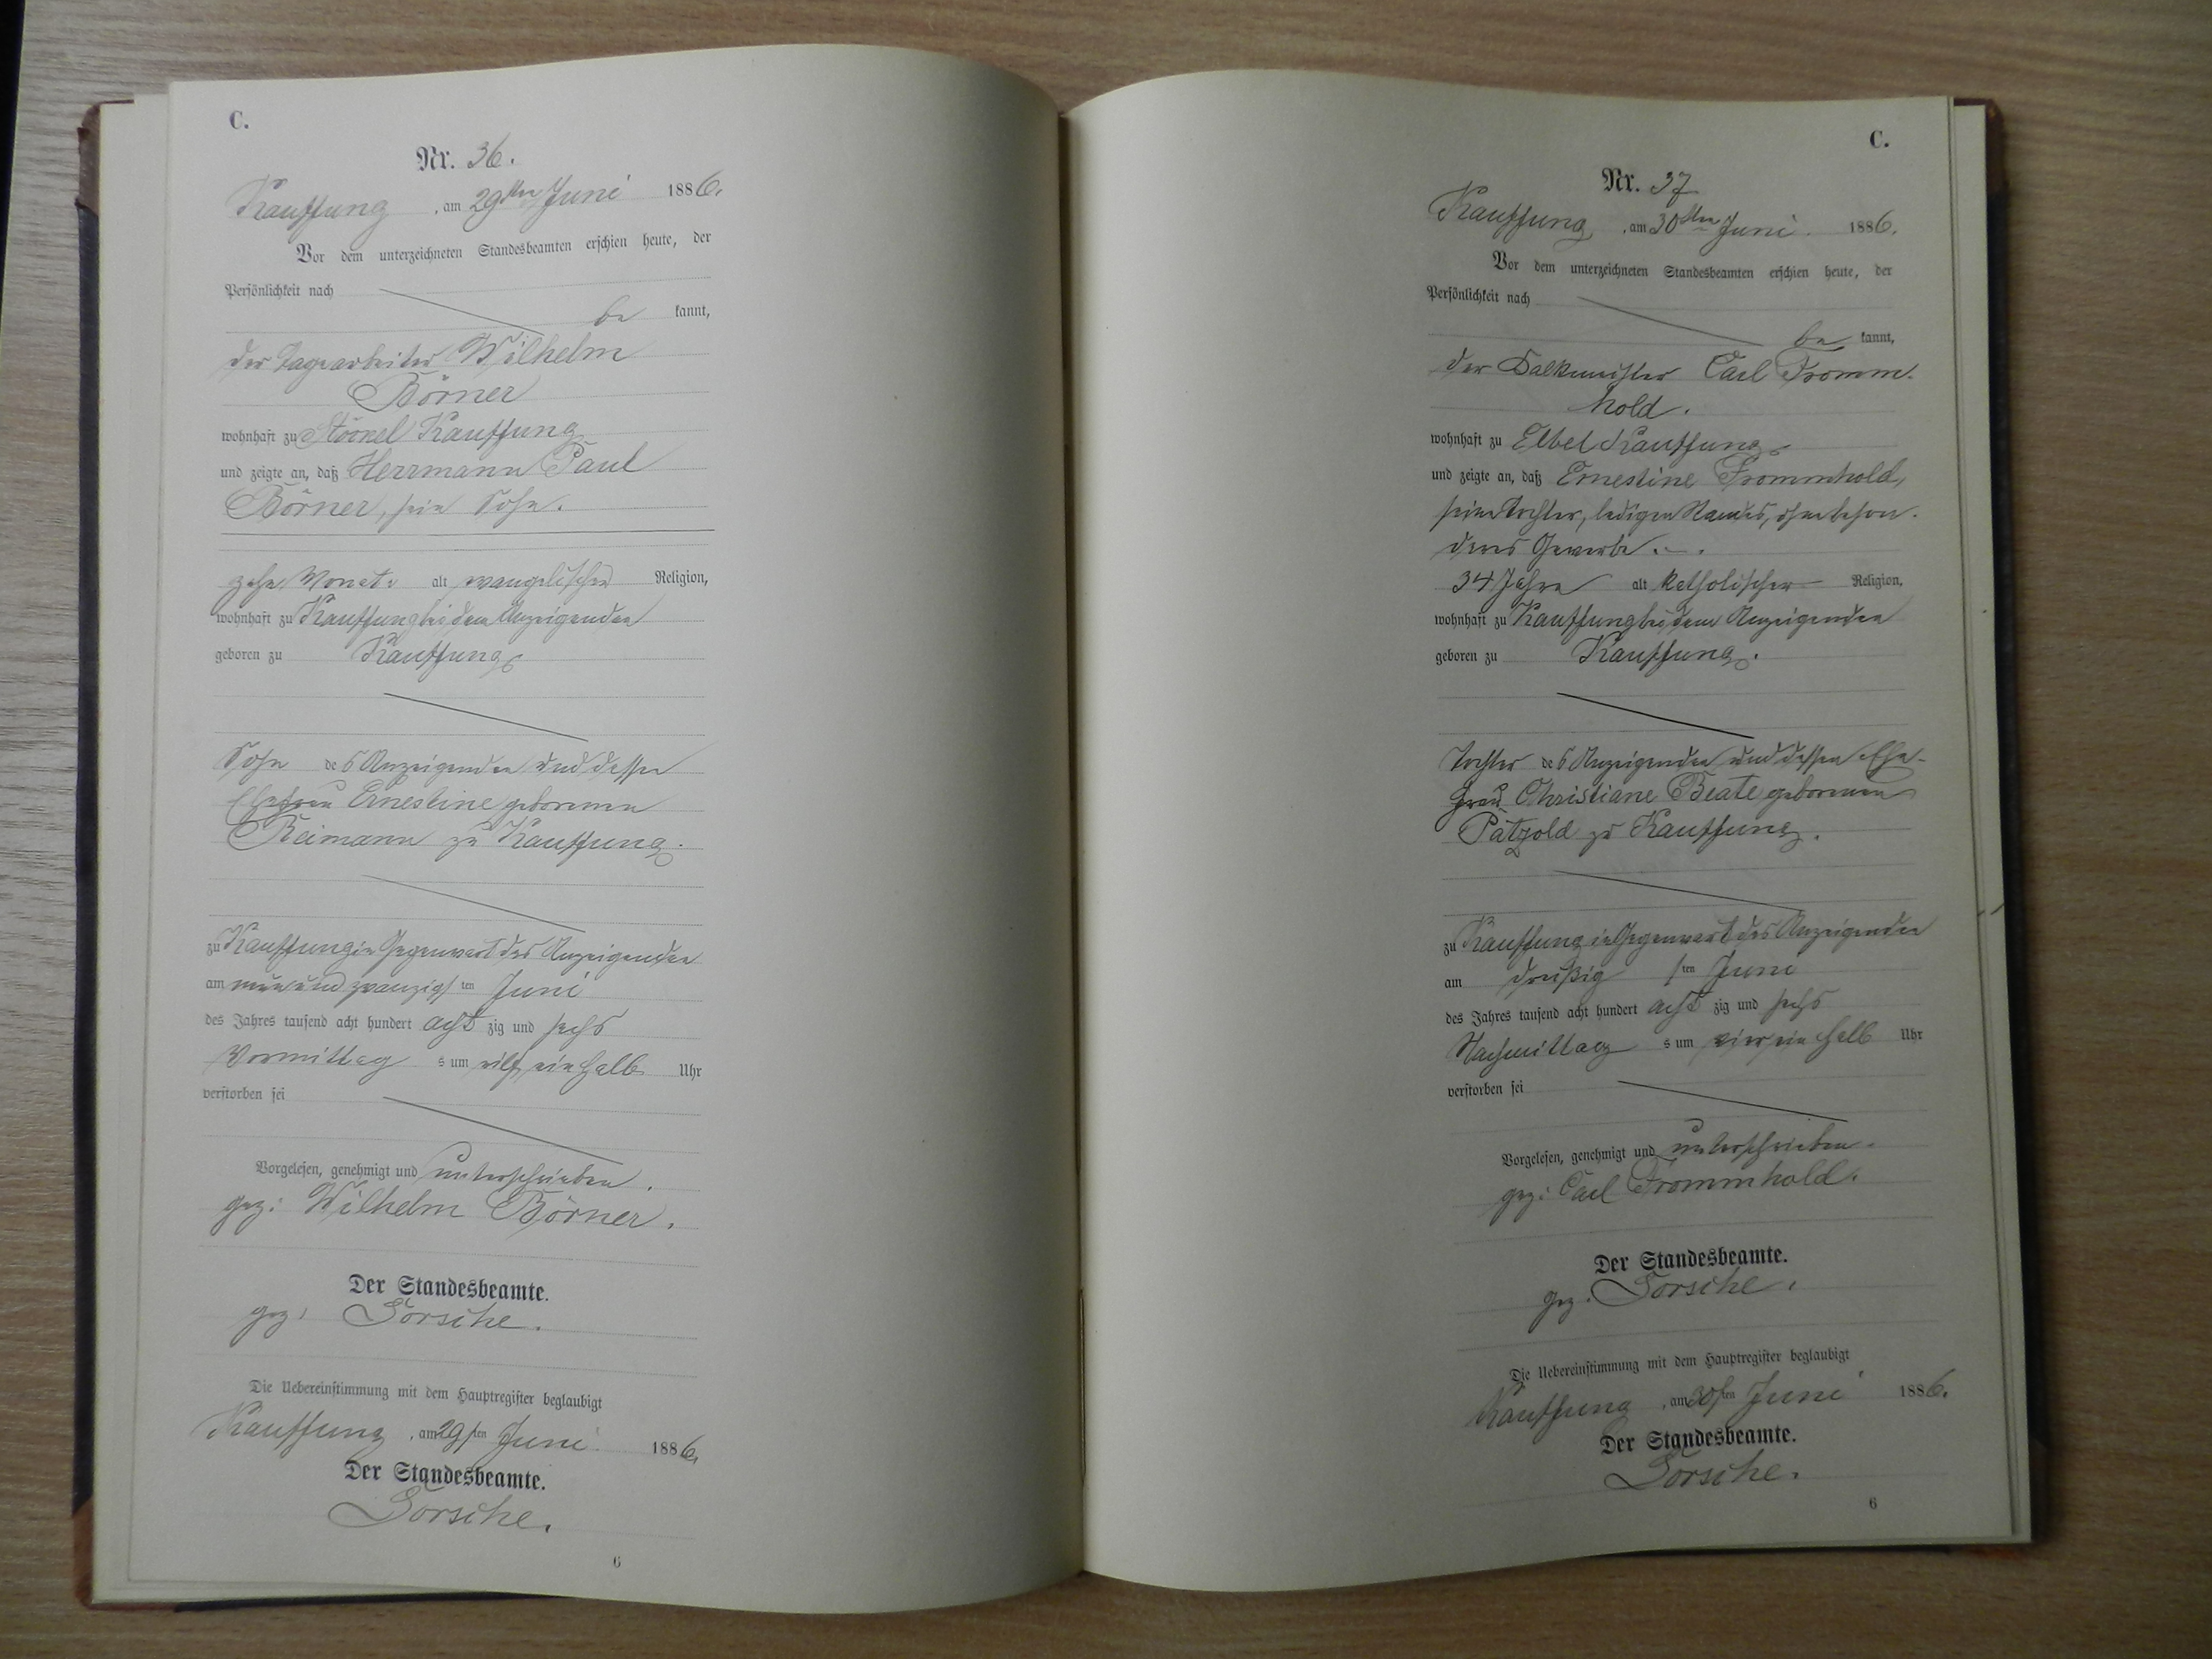 C.
Nr. 36.
Kauffung, am 29ten Juni 1886.
Vor dem unterzeichneten Standesbeamten erschien heute, der
Persönlichkeit nach
be kannt,
der Tagearbeiter Wilhelm
Börner
wohnhaft zu Stöckel Kauffung
und zeigte an, daß Herrmann Paul
Börner, sein Sohn.
zehn Monate alt evangelischer Religion,
wohnhaft zu Kauffung bei dem Anzeigenden
geboren zu Kauffung
Sohn des Anzeigenden und dessen
Ehefrau Ernestine geborenen
Reimann zu Kauffung.
zu Kauffung in Gegenwart des Anzeigenden
am neun und zwanzigsten Juni
des Jahres tausend acht hundert acht zig und sechs
Vormittag s um eilf ein halb Uhr
verstorben sei
Vorgelesen, genehmigt und unterschrieben.
gez: Wilhelm Börner.
Der Standesbeamte.
gez: Forsche.
Die Uebereinstimmung mit dem Hauptregister beglaubigt
Kauffung, am 29sten Juni 1886.
Der Standesbeamte.
Forsche.
6
C.
Nr. 37
Kauffung, am 30sten Juni. 1886.
Vor dem unterzeichneten Standesbeamten erschien heute, der
Persönlichkeit nach
be kannt,
der Kalkmeister Carl Fromm-
hold.
wohnhaft zu Elbel Kauffung
und zeigte an, daß Ernestine Frommhold,
seine Tochter, ledigen Standes, ohne beson-
deres Gewerbe.
34 Jahre alt katholischer Religion,
wohnhaft zu Kauffung bei dem Anzeigenden
geboren zu Kauffung.
Tochter des Anzeigenden und dessen Ehe-
frau Christiane Beate geborenen
Pätzold zu Kauffung.
zu Kauffung in Gegenwart des Anzeigenden
am dreißig sten Juni
des Jahres tausend acht hundert acht zig und sechs
Nachmittag s um vier ein halb Uhr
verstorben sei
Vorgelesen, genehmigt und unterschrieben.
gez: Carl Frommhold.
Der Standesbeamte.
gez. Forsche.
Die Uebereinstimmung mit dem Hauptregister beglaubigt
Kauffung, am 30sten Juni 1886.
Der Standesbeamte.
Forsche.
6